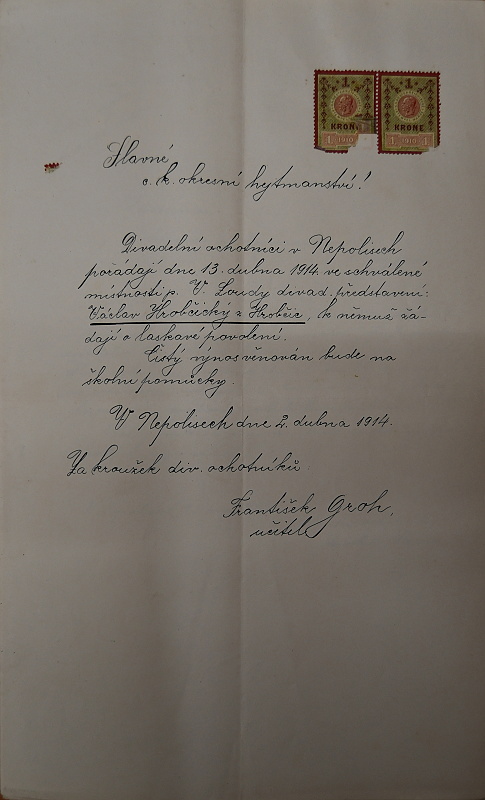 1 1
KRONE KRONE
1 1910 1
Slavné
c. k. okresní hejtmanství!
Divadelní ochotníci v Nepolisech
pořádají dne 13. dubna 1914 ve schválené
místnosti p. V. Loudy divad. představení:
Václav Hrobčický z Hrobčic, k nemuž žá-
dají o laskavé povolení.
Čistý výnos věnován bude na
školní pomůcky.
V Nepolisech dne 2. dubna 1914.
Za kroužek div. ochotníků
František Groh,
učitel